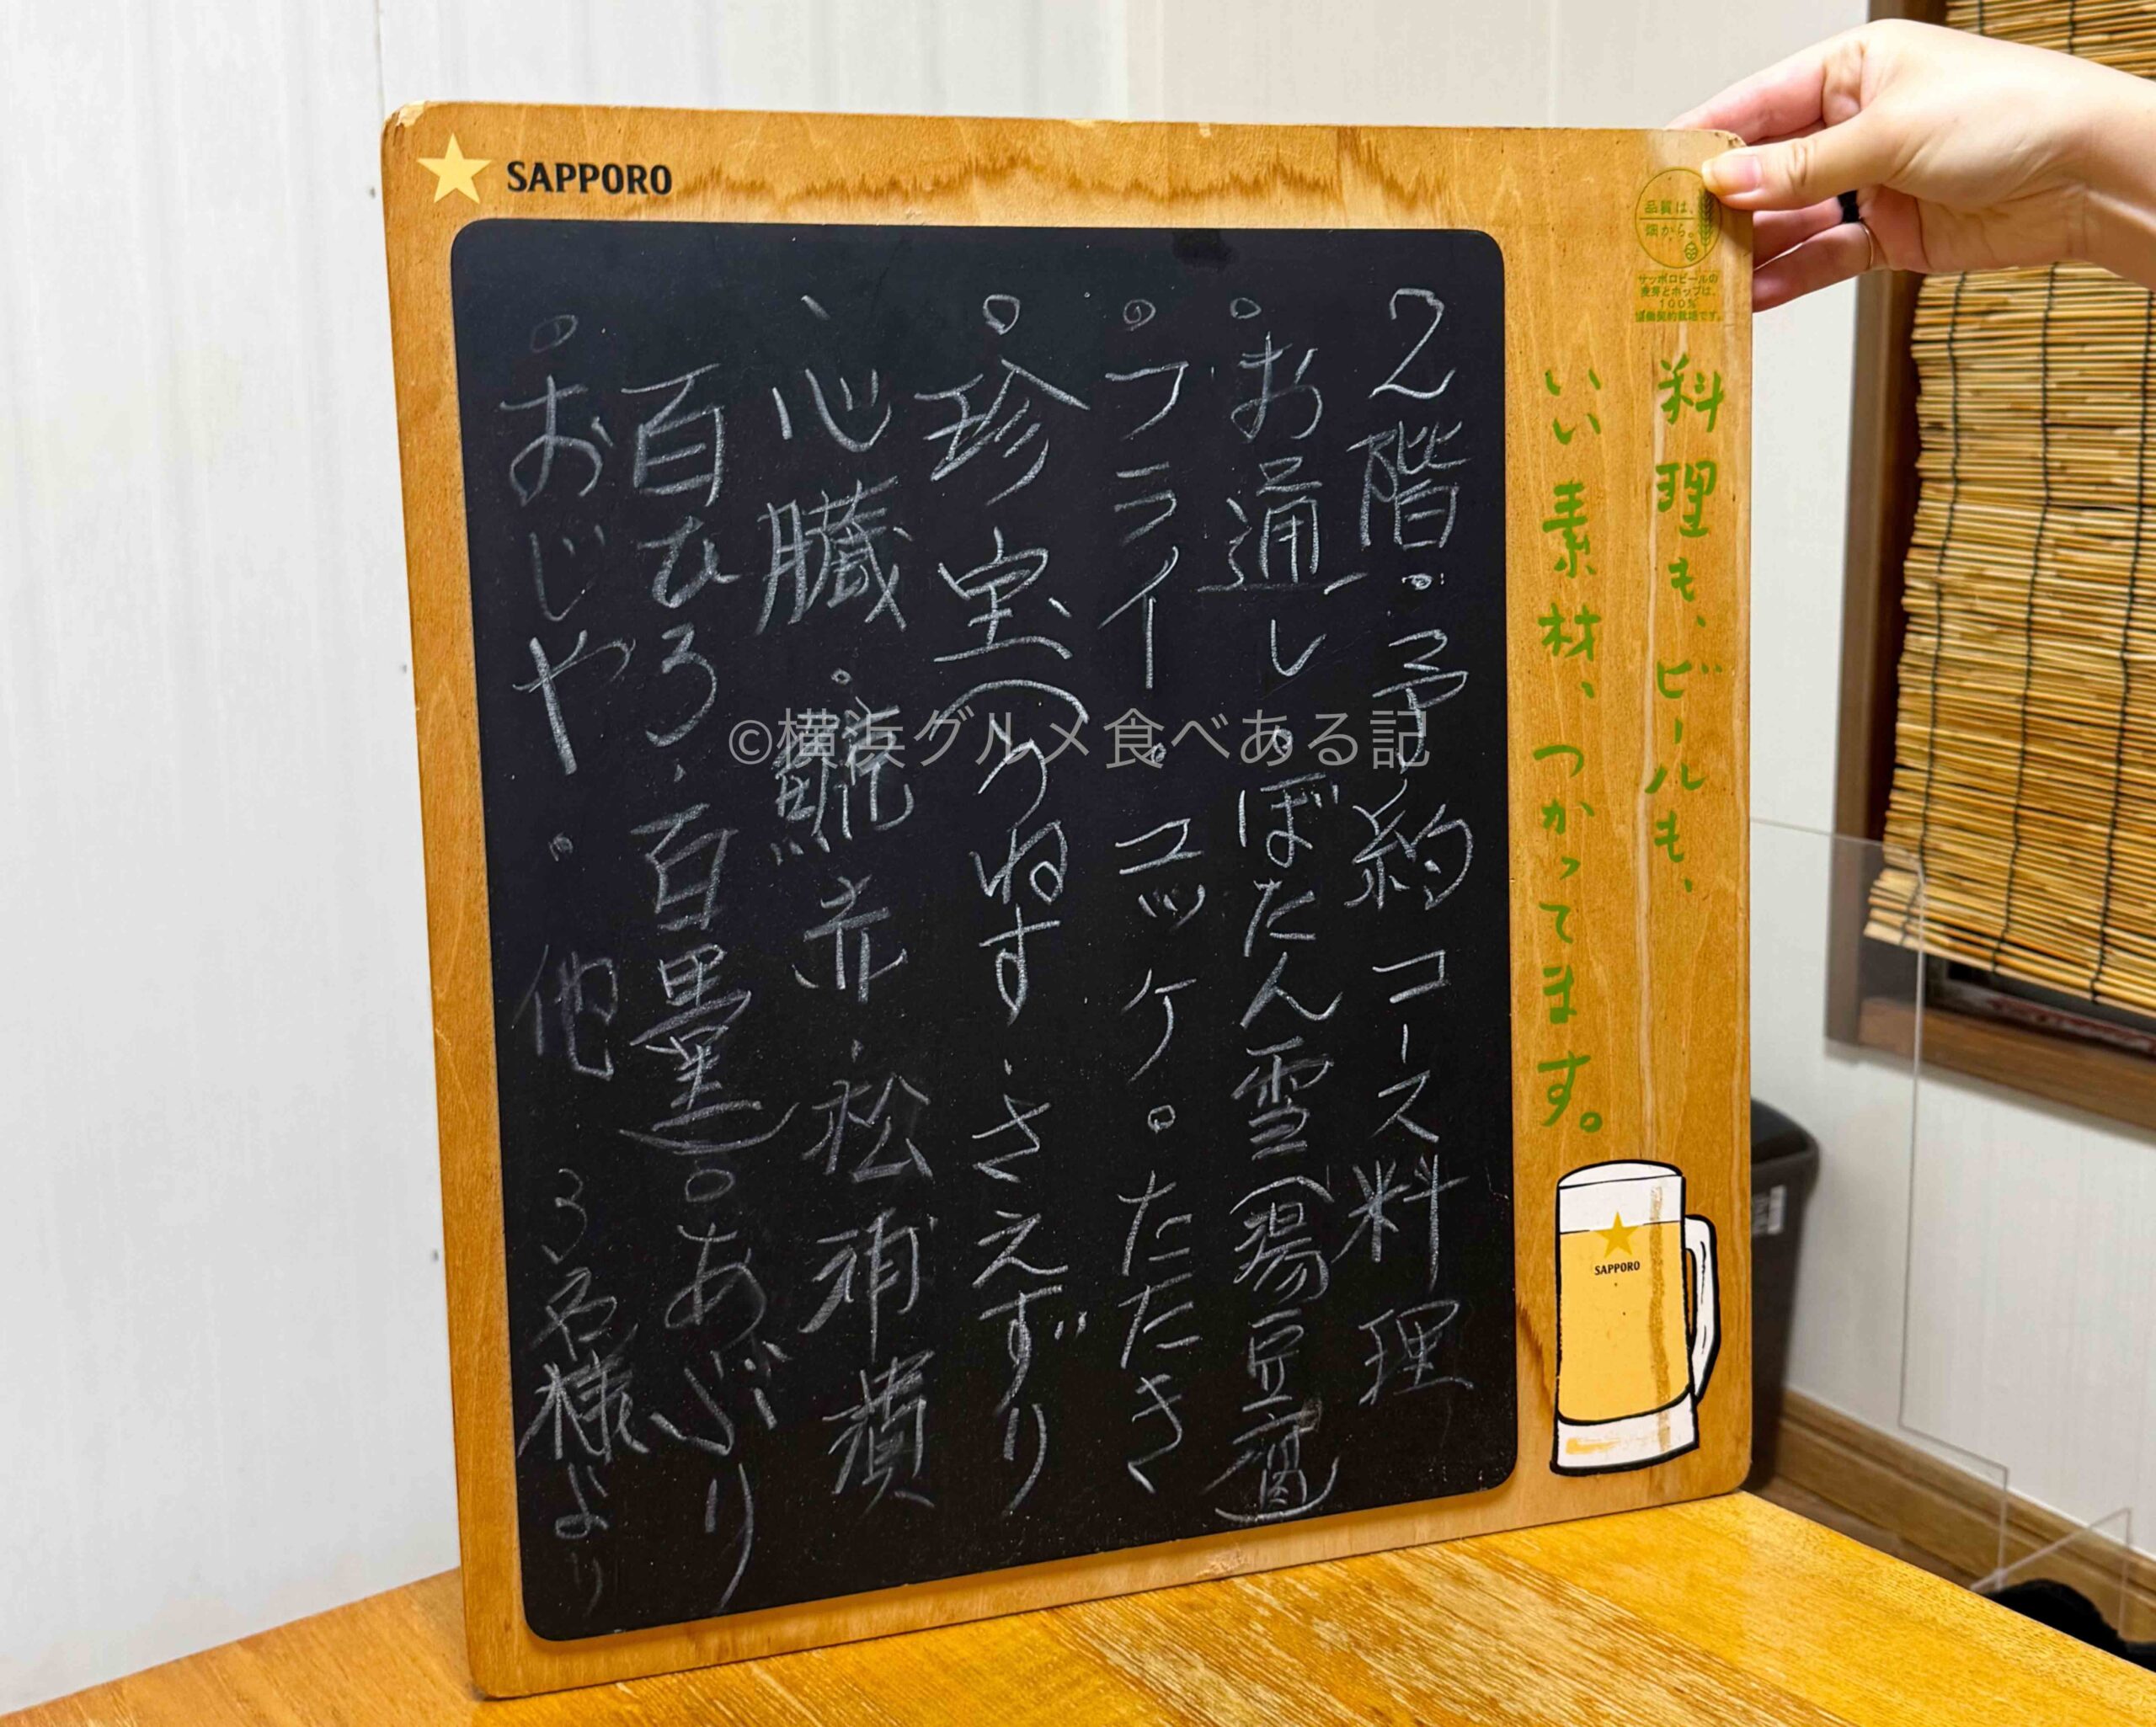 SAPPORO
品質は、
畑から。
サッポロビールの
麦芽とホップは、
100%
協働契約栽培です。
料理も、ビールも、
いい素材、つかってます。
SAPPORO
2階。予約コース料理
。お通し。ぼたん雪(湯豆腐)
。フライ。ユッケ。たたき
。珍宝(うねす、さえずり
、心臓。赤、松浦漬
百ひろ、)。あぶり
。おじや。他 3名様より
©横浜グルメ食べある記